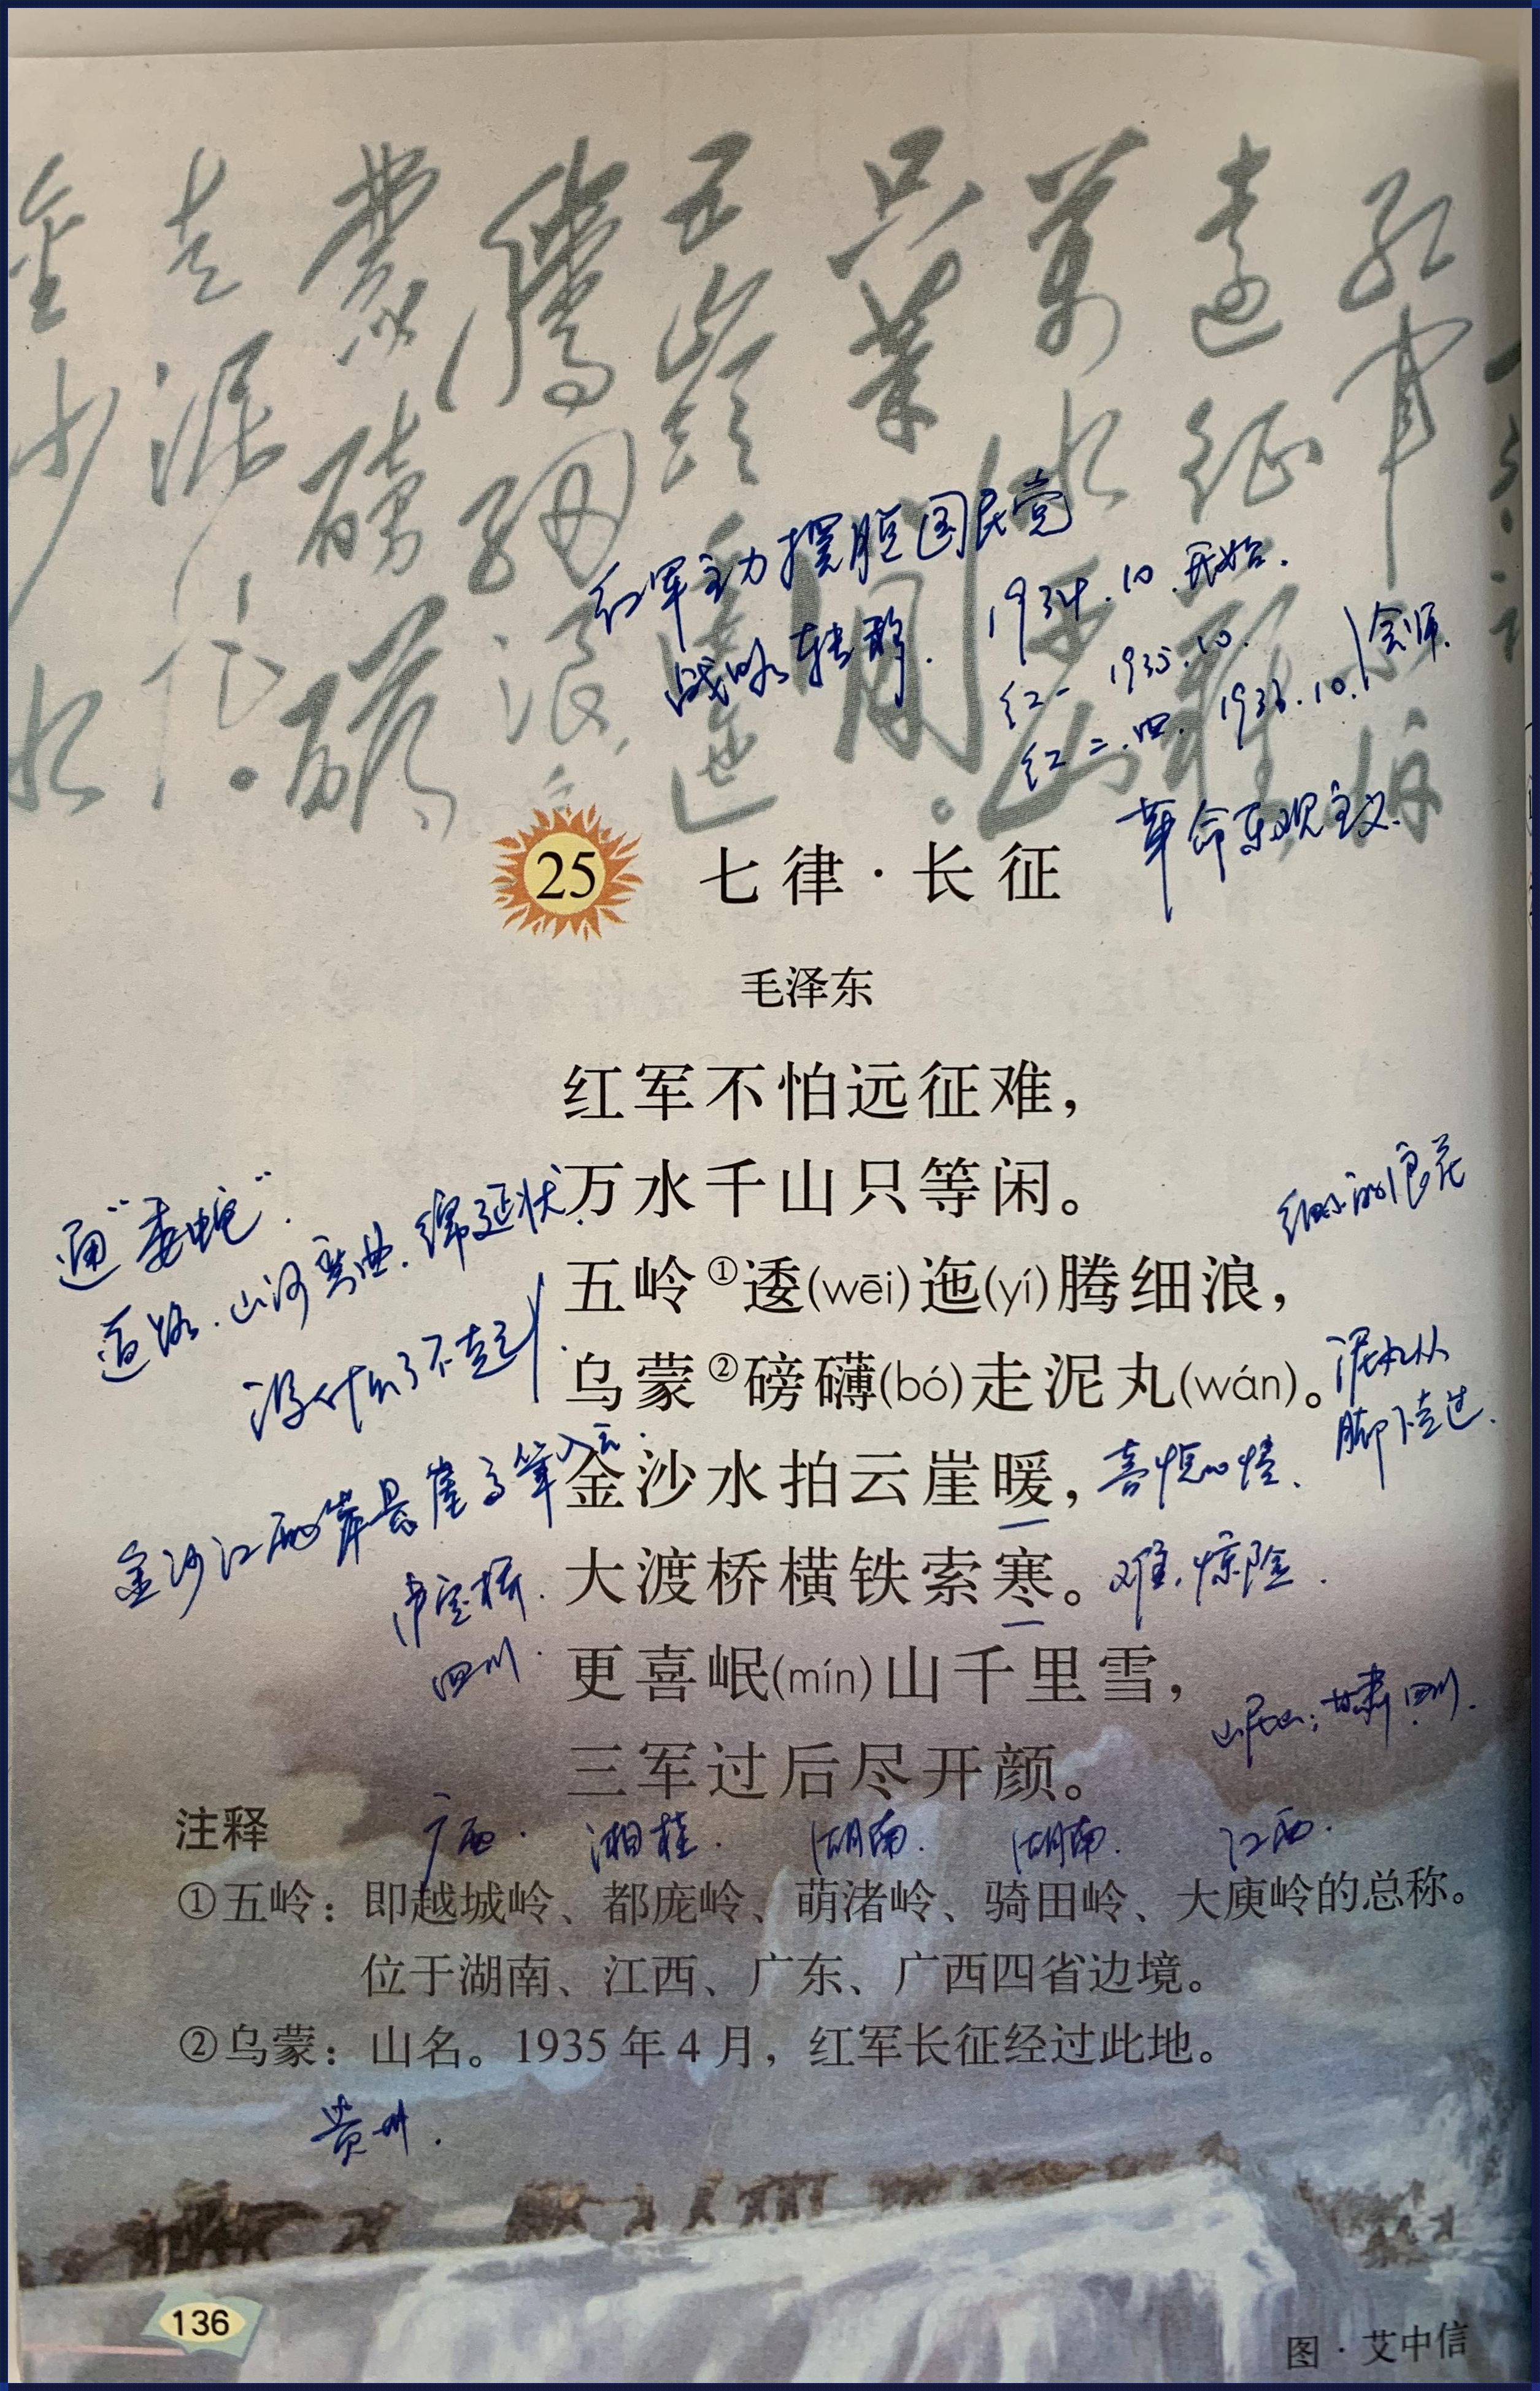 红军
远征难
万水千山
只等闲。
五岭逶迤
腾细浪
蒙磅礴
走泥丸。
金沙水
红军主力摆脱国民党
战略转移.
1934.10.开始.
红一 1935.10.
红二.四. 1936.10. 会师.
革命乐观主义.
25 七律·长征
毛泽东
红军不怕远征难，
万水千山只等闲。
通“委蛇”.
道路.山河弯曲.绵延状.
细小的浪花
五岭①逶(wēi)迤(yí)腾细浪，
没什么了不起
乌蒙②磅礴(bó)走泥丸(wán)。
泥丸从
脚下走过.
金沙江两岸悬崖高耸入云.
金沙水拍云崖暖，
喜悦
泸定桥.
四川.
大渡桥横铁索寒。
难.惊险.
更喜岷(mín)山千里雪，
岷山:甘肃.四川.
三军过后尽开颜。
注释
广西. 湘桂. 湖南. 湖南. 江西.
①五岭：即越城岭、都庞岭、萌渚岭、骑田岭、大庾岭的总称。
位于湖南、江西、广东、广西四省边境。
②乌蒙：山名。1935年4月，红军长征经过此地。
贵州.
136
图·艾中信